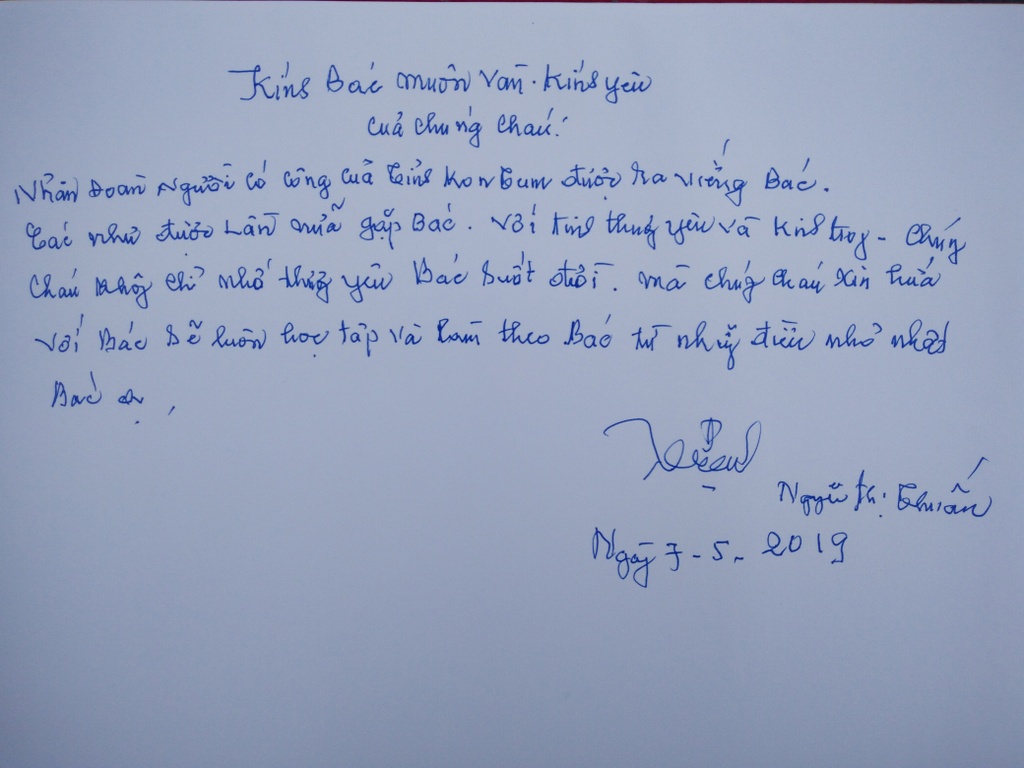 Kính Bác muôn vàn kính yêu
của chúng cháu!
Nhân Đoàn người có công của tỉnh Kon Tum được ra viếng Bác.
như được lần nữa gặp Bác. Với tình thương yêu và kính trọng - Chúng
cháu không chỉ nhớ thương yêu Bác suốt đời. mà chúng cháu xin hứa
với Bác sẽ luôn học tập và làm theo Bác từ những điều nhỏ nhất
Bác ạ,
Nguyễn Thị
Ngày 7-5-2019